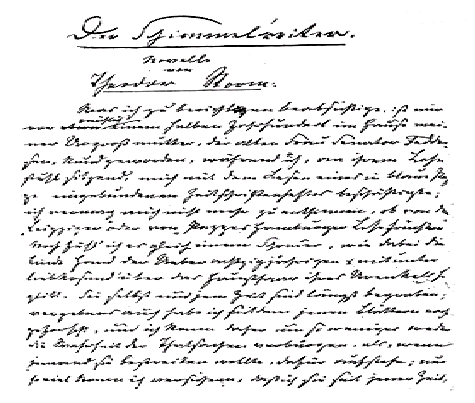 Der Schimmelreiter.
Novelle
von
Theodor Storm.
Was ich zu berichten beabsichtige, ist mir
reichlich
vor einem halben Jahrhundert im Hause mei-
ner Urgroßmutter, der alten Frau Senator Fedder-
sen, kund geworden, während ich, an ihrem Lehn-
stuhl sitzend, mich mit dem Lesen eines in blaue Pap-
pe eingebundenen Zeitschriftenheftes beschäftigte;
ich vermag mich nicht mehr zu entsinnen, ob von den
Leipziger oder von Pappes Hamburger Lesefrüchten.
Noch fühl' ich es gleich einem Schauer, wie dabei die
linde Hand der über achtzigjährigen mitunter
liebkosend über das Haupthaar ihres Urenkels hin
glitt. Sie selbst und jene Zeit sind längst begraben;
vergebens auch habe ich seitdem jenen Blättern nach
geforscht, und ich kann daher um so weniger weder
die Wahrheit der Thatsachen verbürgen, als, wenn
jemand sie bestreiten wollte, dafür aufstehen; nur
so viel kann ich versichern, daß ich sie seit jener Zeit,